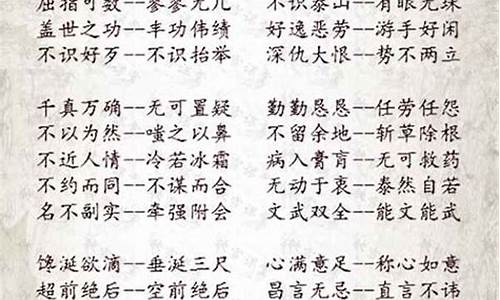 屈指可数--寥寥无几 不识泰山--有眼无珠
盖世之功--丰功伟绩 好逸恶劳--游手好闲
不识好歹--不识抬举 深仇大恨--势不两立
千真万确--无可置疑 勤勤恳恳--任劳任怨
不以为然--嗤之以鼻 不留余地--斩草除根
不近人情--冷若冰霜 病入膏肓--无可救药
不约而同--不谋而合 无动于衷--泰然自若
名不副实--牵强附会 文武双全--能文能武
馋涎欲滴--垂涎三尺 心满意足--称心如意
超前绝后--空前绝后 昌言无忌--直言不讳